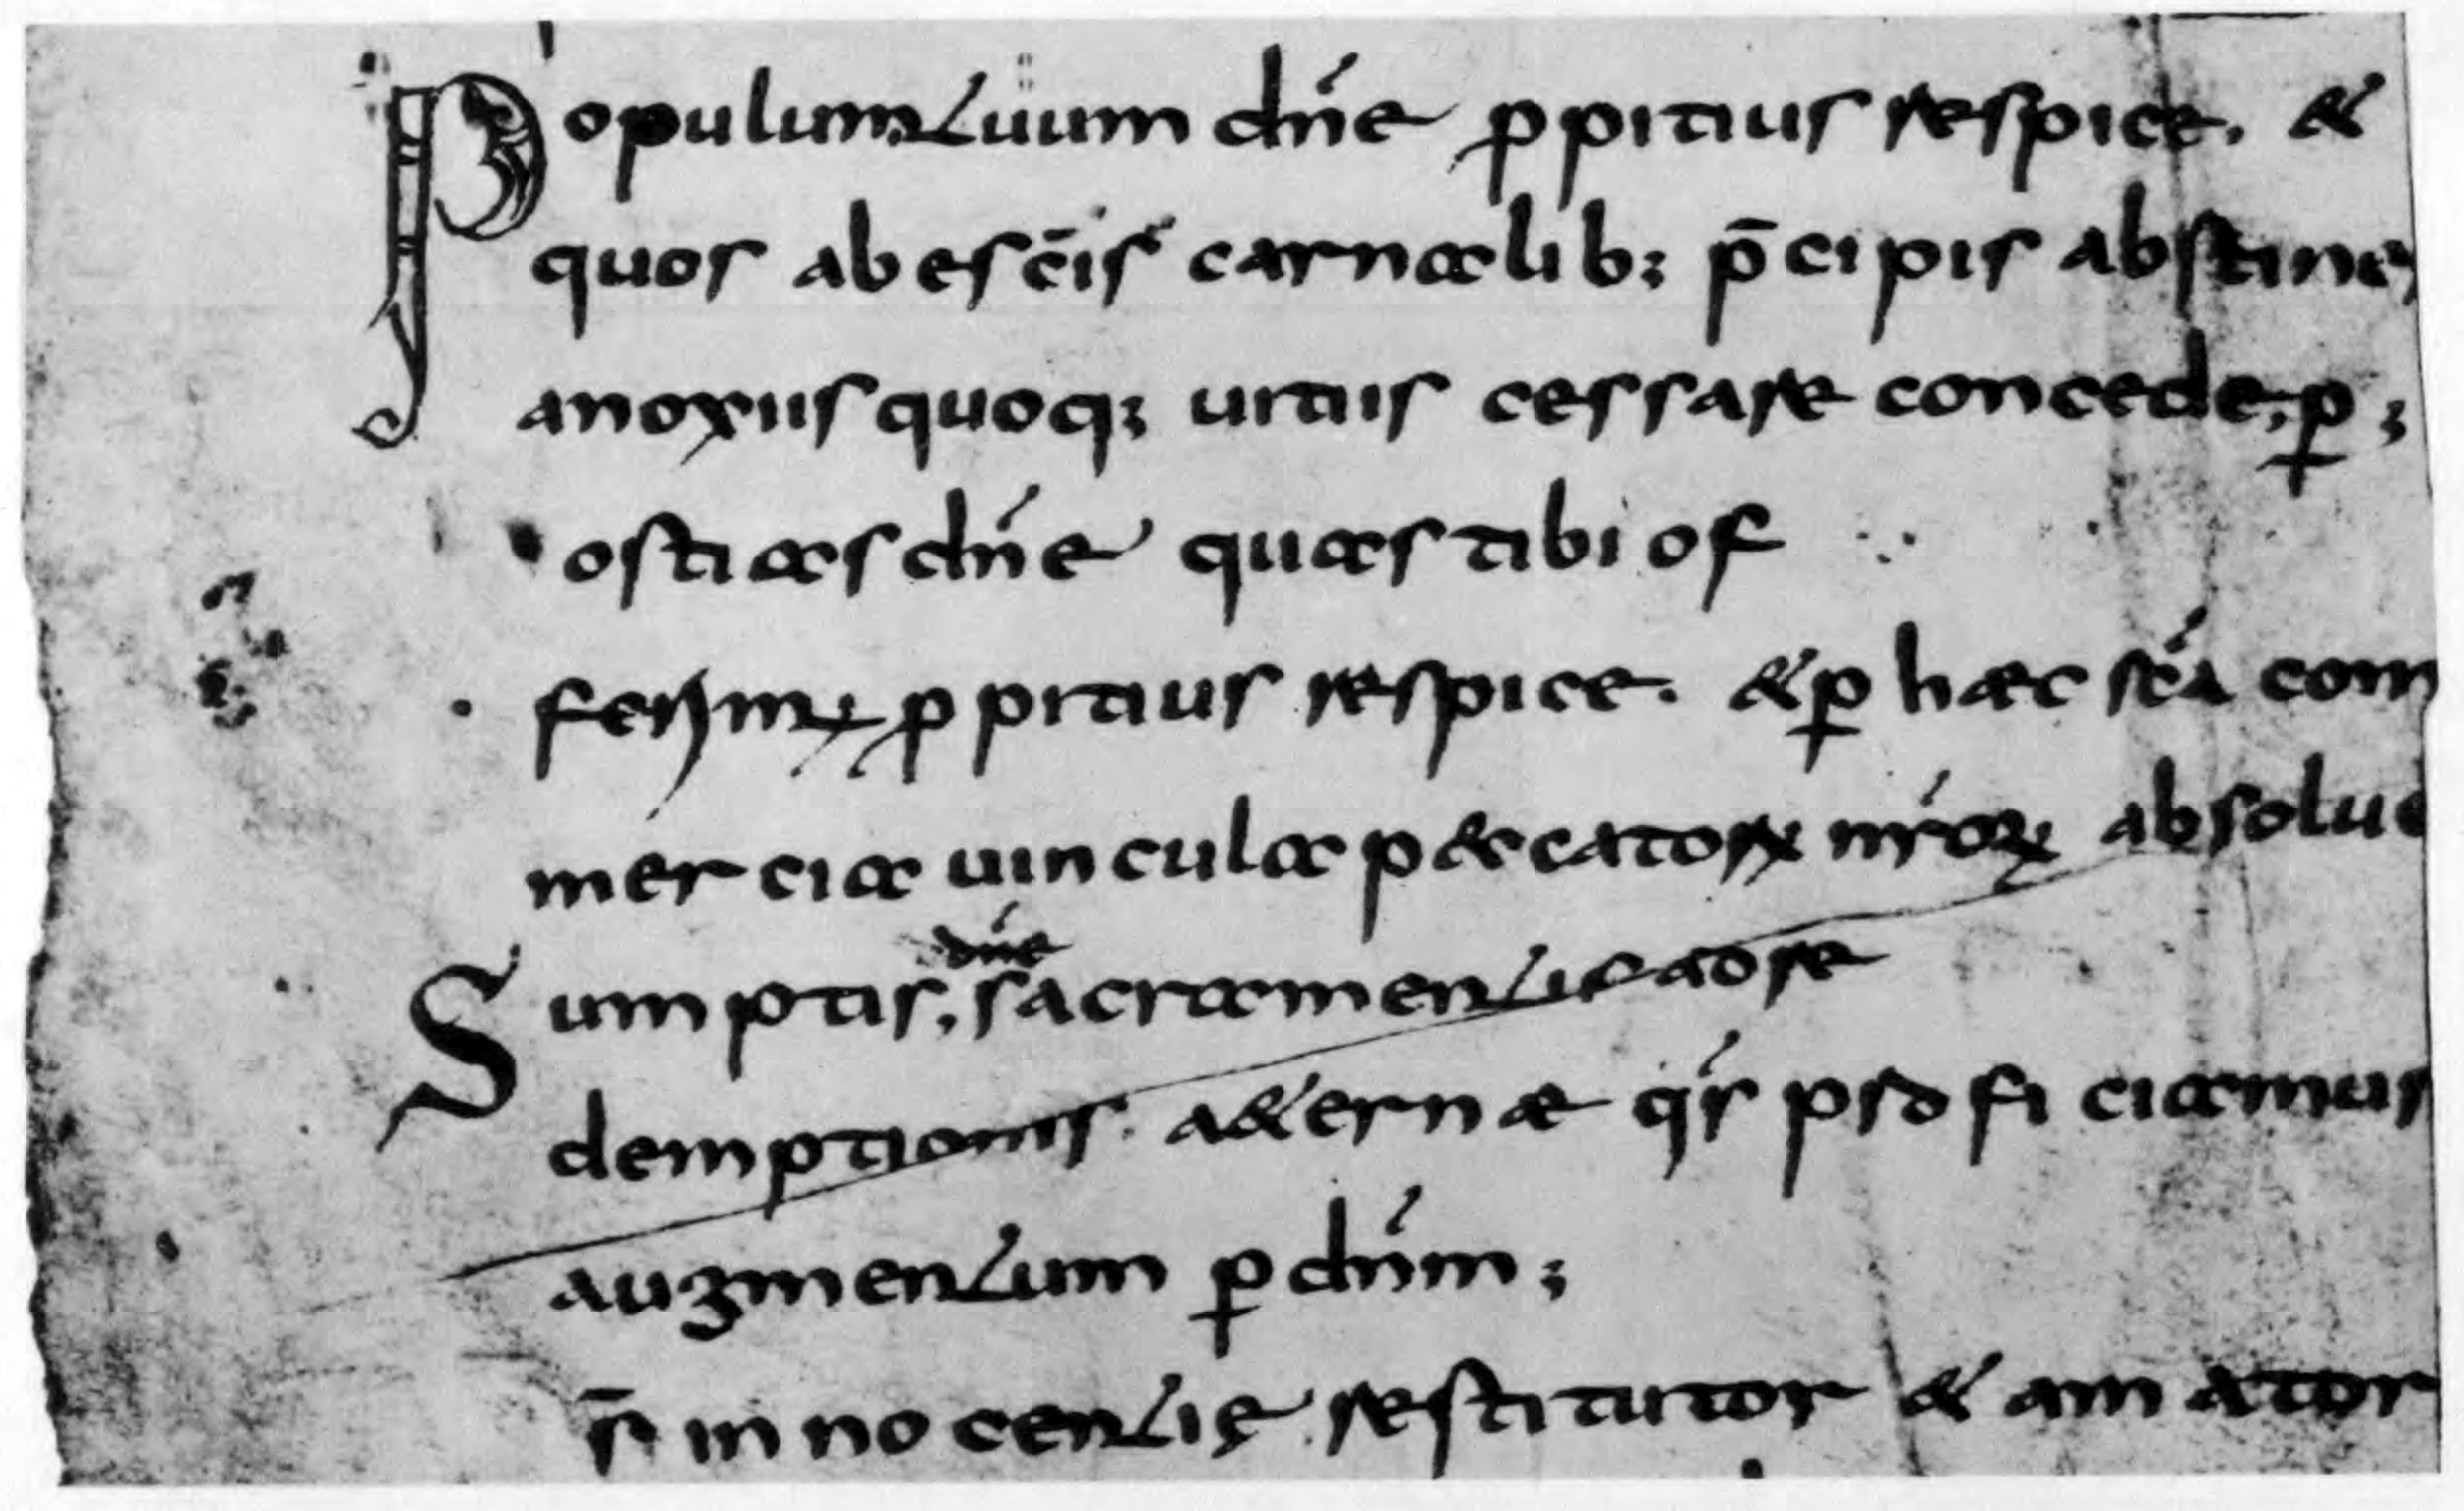 Populum tuum dn̄e ꝓpitius respice. &
quos ab esc̄is carnalib; p̄cipis abstine
anoxiis quoq; uitiis cessare concede. ꝑ;
ostias dn̄e quas tibi of
ferimꝰ ꝓpitius respice. & ꝑ haec sc̄a com
mercia uincula p&catoꝝ nr̄oꝝ absolue
Sumptis, dn̄e sacramentis ad re
demptionis. a&ernae qs̄ proficiamus
augmentum ꝑ dn̄m;
s̄ innocentię restitutor & amator